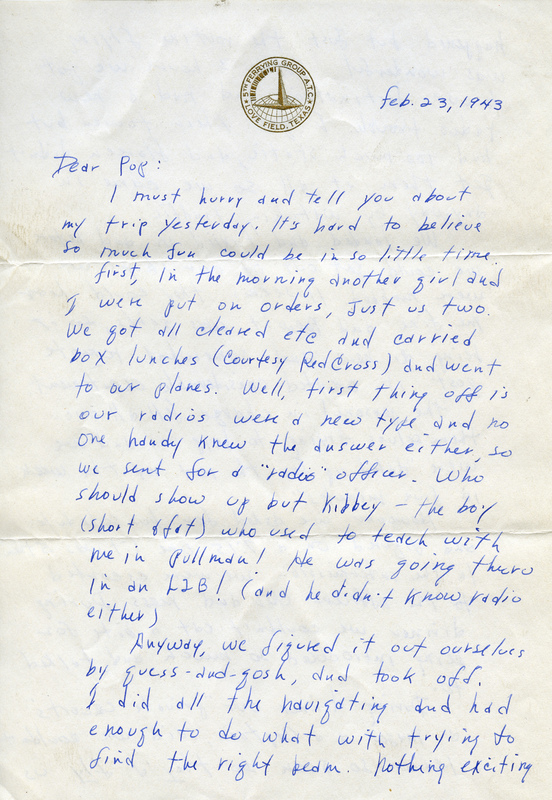 5TH FERRYING GROUP A.T.C.
LOVE FIELD, TEXAS
Feb. 23, 1943
Dear Pop:
I must hurry and tell you about
my trip yesterday. It's hard to believe
so much fun could be in so little time.
First, in the morning another girl and
I were put on orders, Just us two.
We got all cleared etc and carried
box lunches (Courtesy RedCross) and went
to our planes. Well, first thing off is
our radios were a new type and no
one handy knew the answer either, so
we sent for a "radio" officer. Who
should show up but Kibbey - the boy
(short & fat) who used to teach with
me in Pullman! He was going there
in an L2B! (and he didn't know radio
either)
Anyway, we figured it out ourselves
by guess-and-gosh, and took off.
I did all the navigating and had
enough to do what with trying to
find the right beam. Nothing exciting